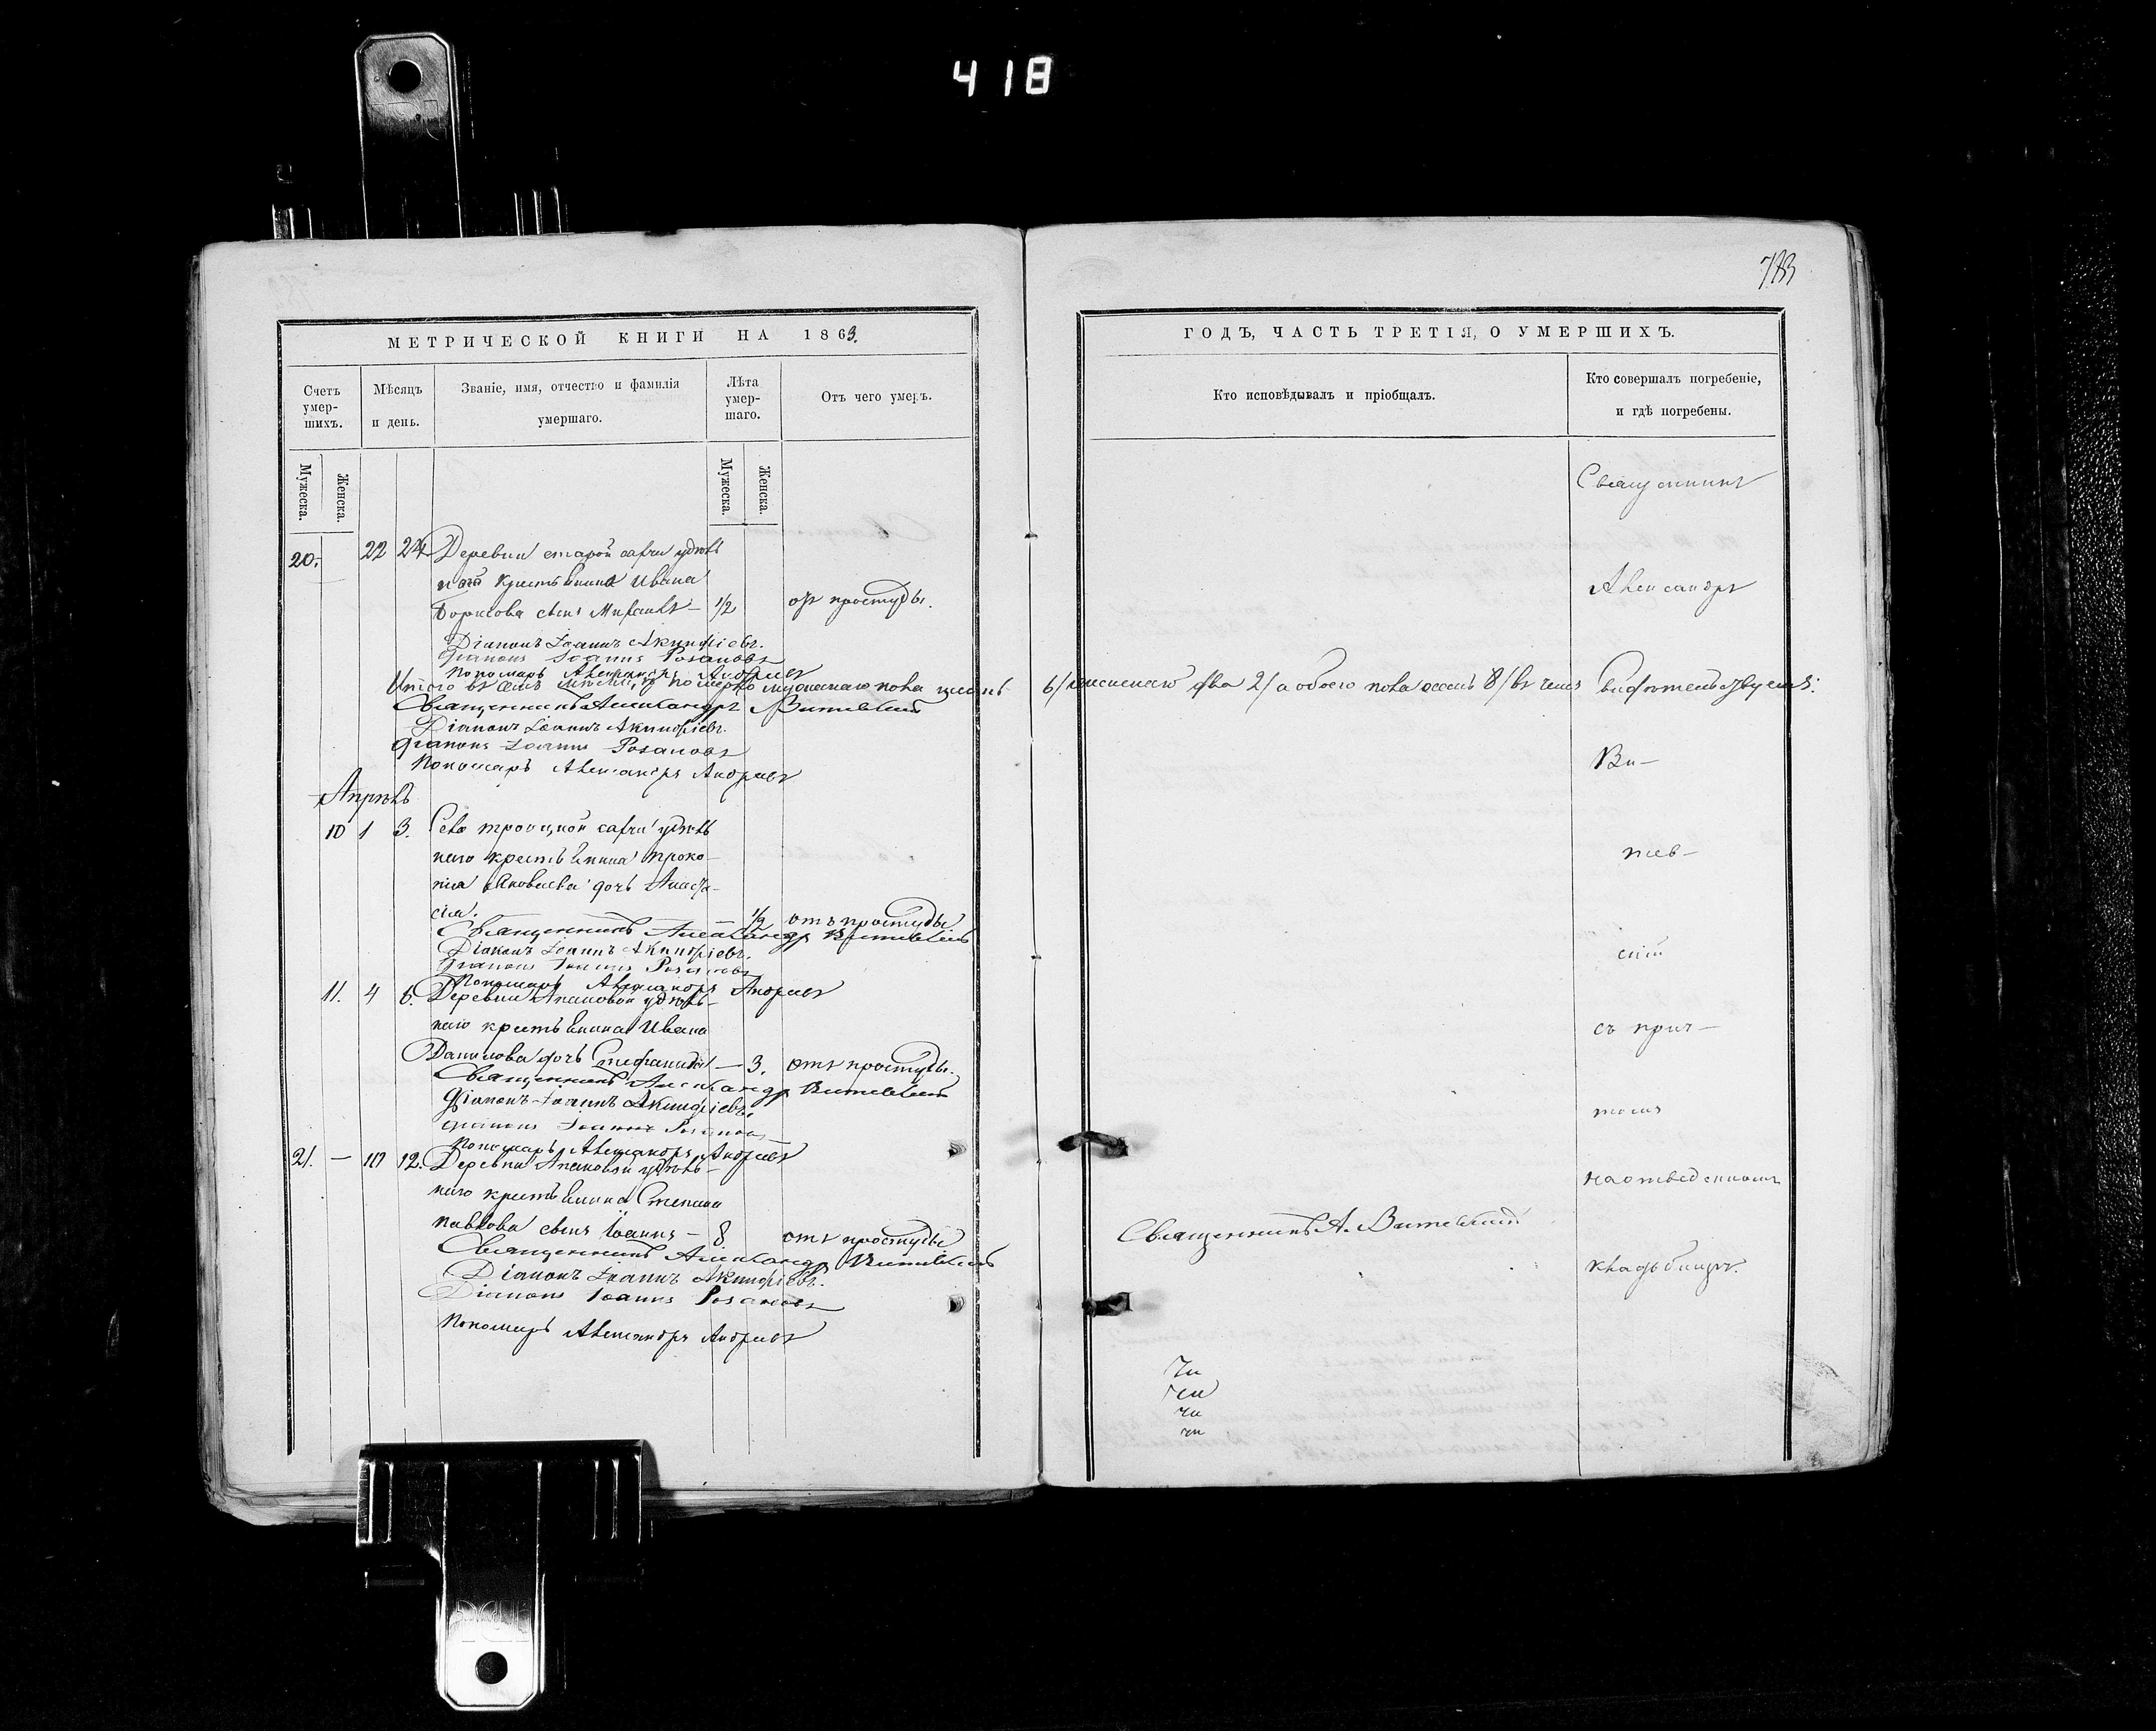 418
МЕТРИЧЕСКОЙ КНИГИ НА 1863.
Счетъ умер-шихъ.
Мѣсяцъ и день.
Званіе, имя, отчество и фамилія умершаго.
Лѣта умер-шаго.
Отъ чего умеръ.
Мужеска.
Женска.
Мужеска.
Женска.
20. 22 24 Деревни старой удѣль
наго крестьянина Ивана
Борисова сынъ 1/2 отъ простуды.
Діаконъ Іоаннъ Акинфіевъ.
Діаконъ Іоаннъ Розановъ
Пономарь Александръ Андреевъ
Итого въ семъ мѣсяцѣ померло мужескаго пола шесть
Священникъ Александръ Витевскій
Діаконъ Іоаннъ Акинфіевъ.
Діаконъ Іоаннъ Розановъ
Пономарь Александръ Андреевъ
Апрѣль
10 1 3. Села троицкой удѣль
наго крестьянина Проко-
пія Яковлева дочь Анаста-
сія. 1/2 отъ простуды
Священникъ Александръ Витевскій
Діаконъ Іоаннъ Акинфіевъ.
Діаконъ Іоаннъ Розановъ
Пономарь Александръ Андреевъ
11. 4 6. Деревни удѣль-
наго крестьянина Ивана
Данилова дочь Стефанида — 3. отъ простуды.
Священникъ Александръ Витевскій
Діаконъ Іоаннъ Акинфіевъ.
Діаконъ Іоаннъ Розановъ
Пономарь Александръ Андреевъ
21. — 10 12. Деревни удѣль-
наго крестьянина Степана
Павлова сынъ Іоаннъ — 8 отъ простуды
Священникъ Александръ Витевскій
Діаконъ Іоаннъ Акинфіевъ.
Діаконъ Іоаннъ Розановъ
Пономарь Александръ Андреевъ
ГОДЪ, ЧАСТЬ ТРЕТІЯ, О УМЕРШИХЪ.
Кто исповѣдывалъ и пріобщалъ.
Кто совершалъ погребеніе, и гдѣ погребены.
Священникъ
Александръ
6/ женскаго два 2/ а обоего пола осемь 8/ въ чемъ свидѣтельствуемъ:
Ви-
тев-
скій
съ прич-
томъ
на отведенномъ
Священникъ А. Витевскій
кладбищѣ.